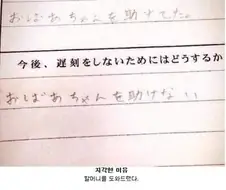 おばあちゃんを助けてた。
今後、遅刻をしないためにはどうするか
おばあちゃんを助けない
지각한 이유
할머니를 도와드렸다.